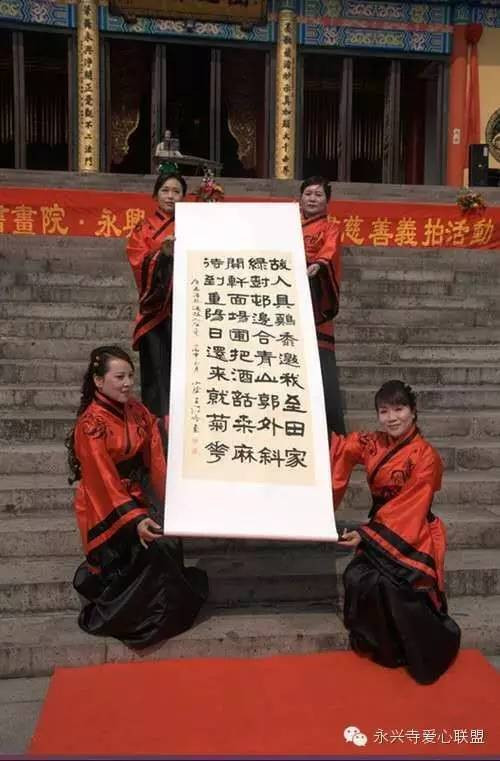 不二法門
大千世界
書畫院·永興
慈善義拍活動
故人具鷄黍邀我至田家
綠樹邨邊合青山郭外斜
開軒面場圃把酒話桑麻
待到重陽日還來就菊華
永兴寺爱心联盟